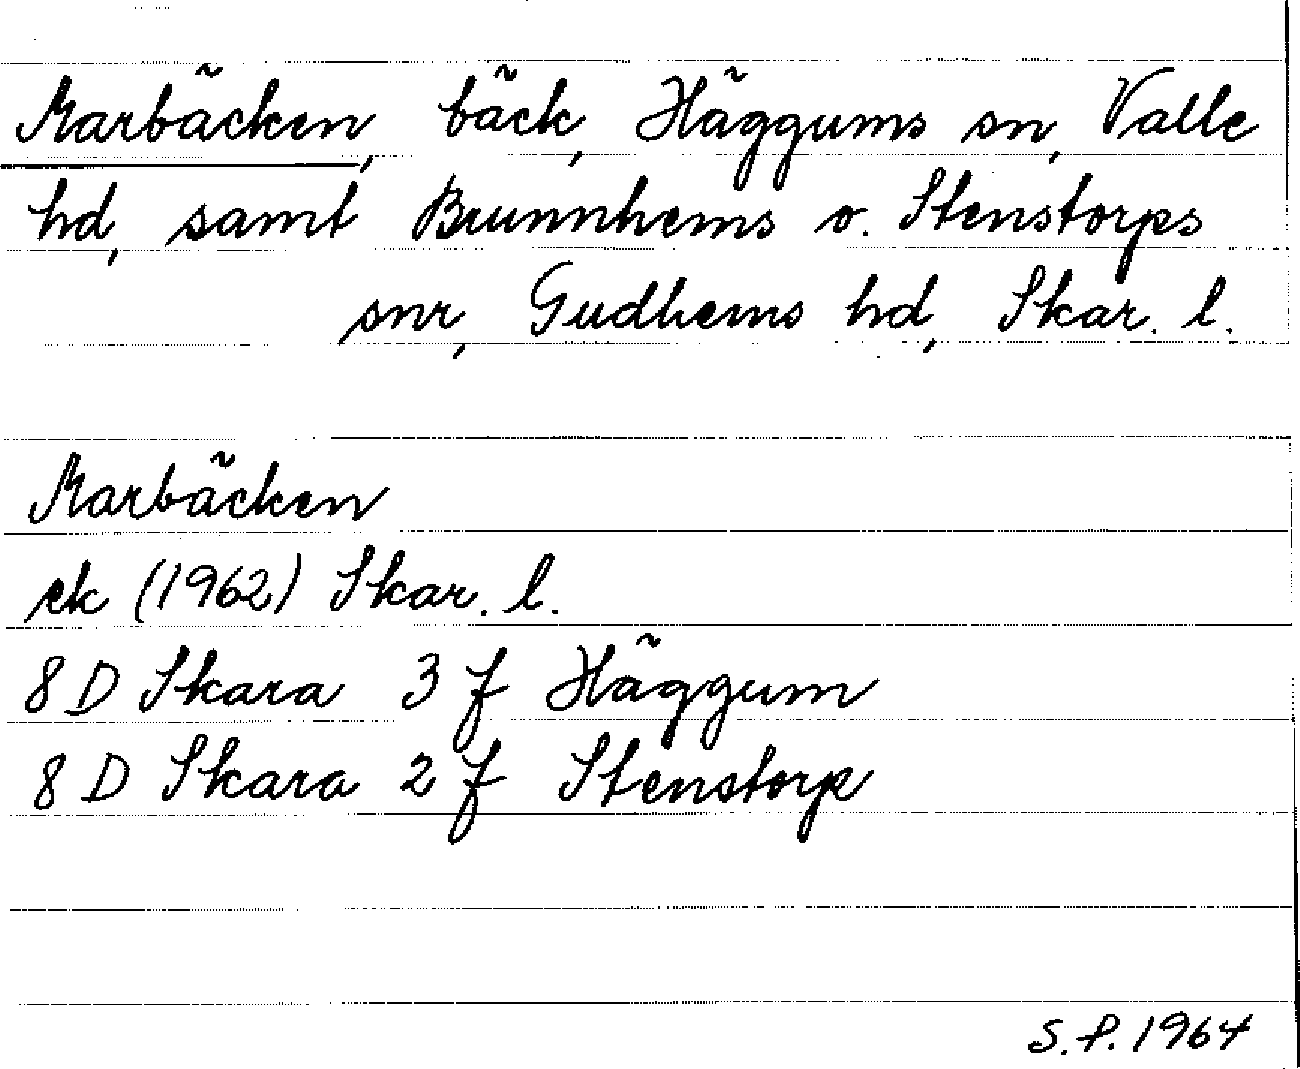 Marbäcken, bäck, Häggums sn, Valle
hd, samt Brunnhems o. Stenstorps
snr, Gudhems hd, Skar. l.
Marbäcken
ek (1962) Skar. l.
8 D Skara 3 f Häggum
8 D Skara 2 f Stenstorp
S.P. 1964